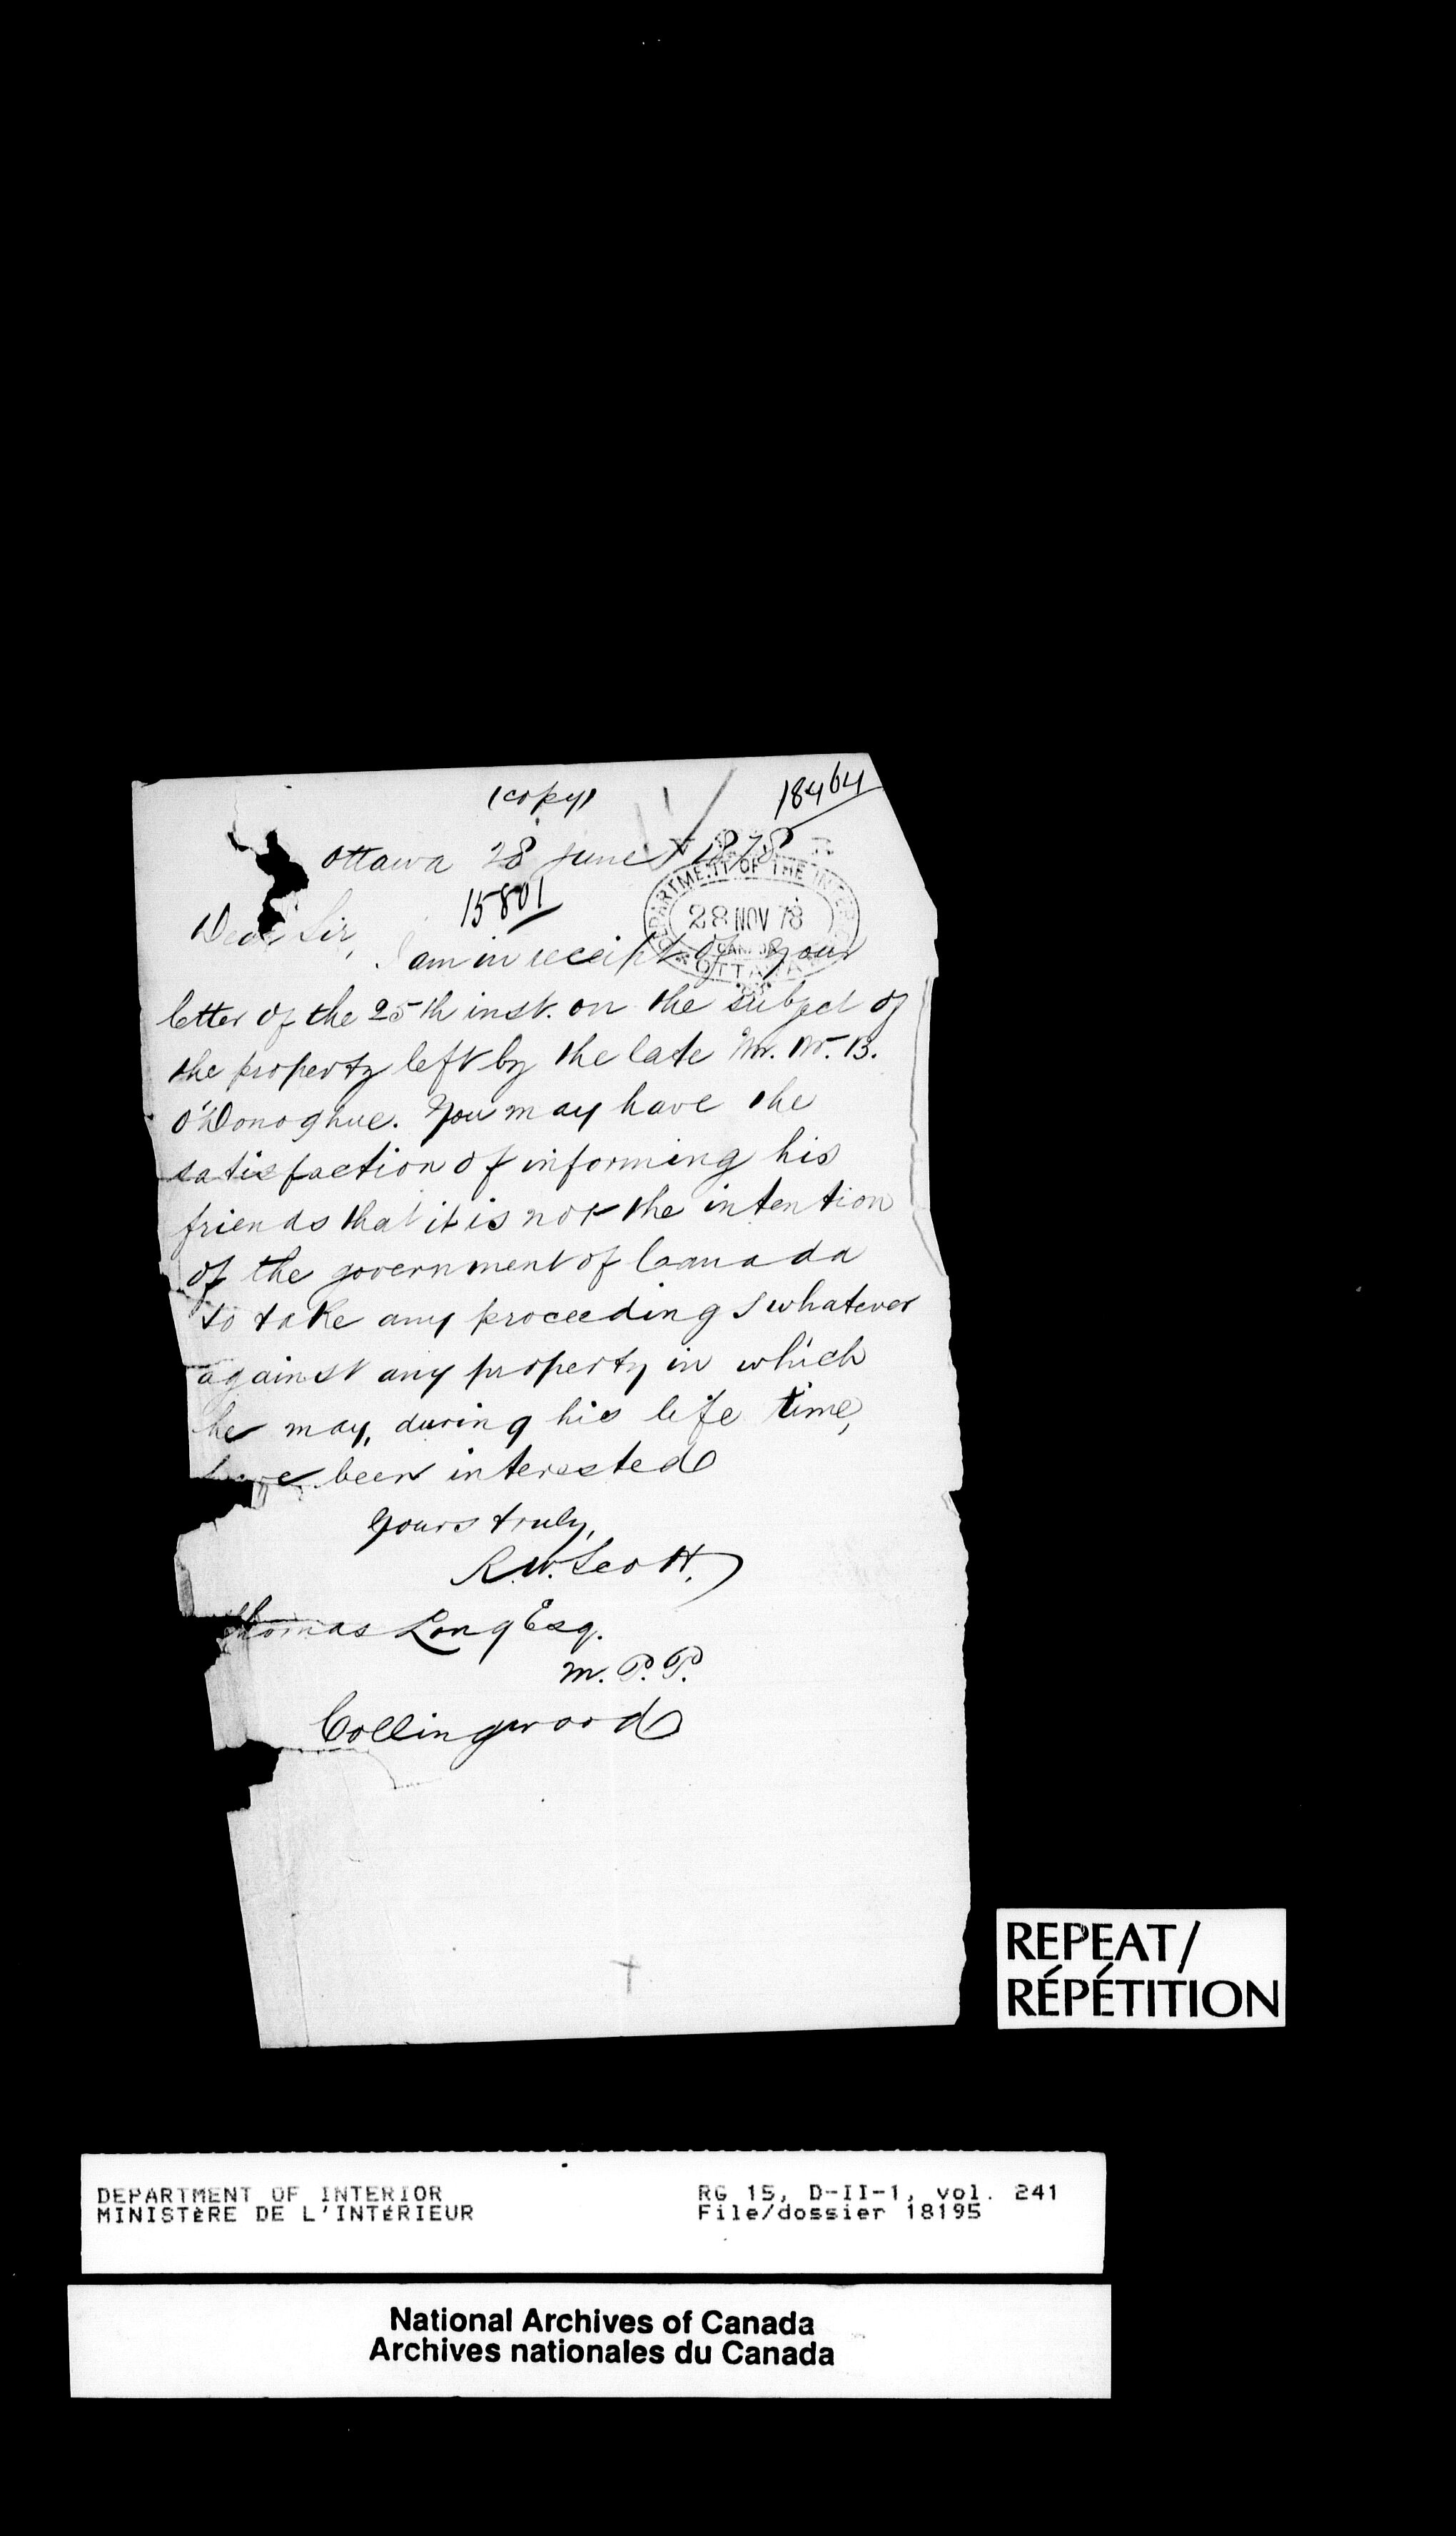 (copy)
18464
Ottawa 28 June 1878
15801
DEPARTMENT OF THE INTERIOR
28 NOV 78
CANADA
OTTAWA
Dear Sir,
I am in receipt of your
letter of the 25th inst. on the subject of
the property left by the late Mr. W. B.
O'Donoghue. You may have the
satisfaction of informing his
friends that it is not the intention
of the government of Canada
to take any proceedings whatever
against any property in which
he may, during his life time,
have been interested
Yours truly,
R. W. Scott.
Thomas Long Esq.
M. P. P.
Collingwood
REPEAT/
RÉPÉTITION
DEPARTMENT OF INTERIOR
MINISTÈRE DE L'INTÉRIEUR
RG 15, D-II-1, vol. 241
File/dossier 18195
National Archives of Canada
Archives nationales du Canada